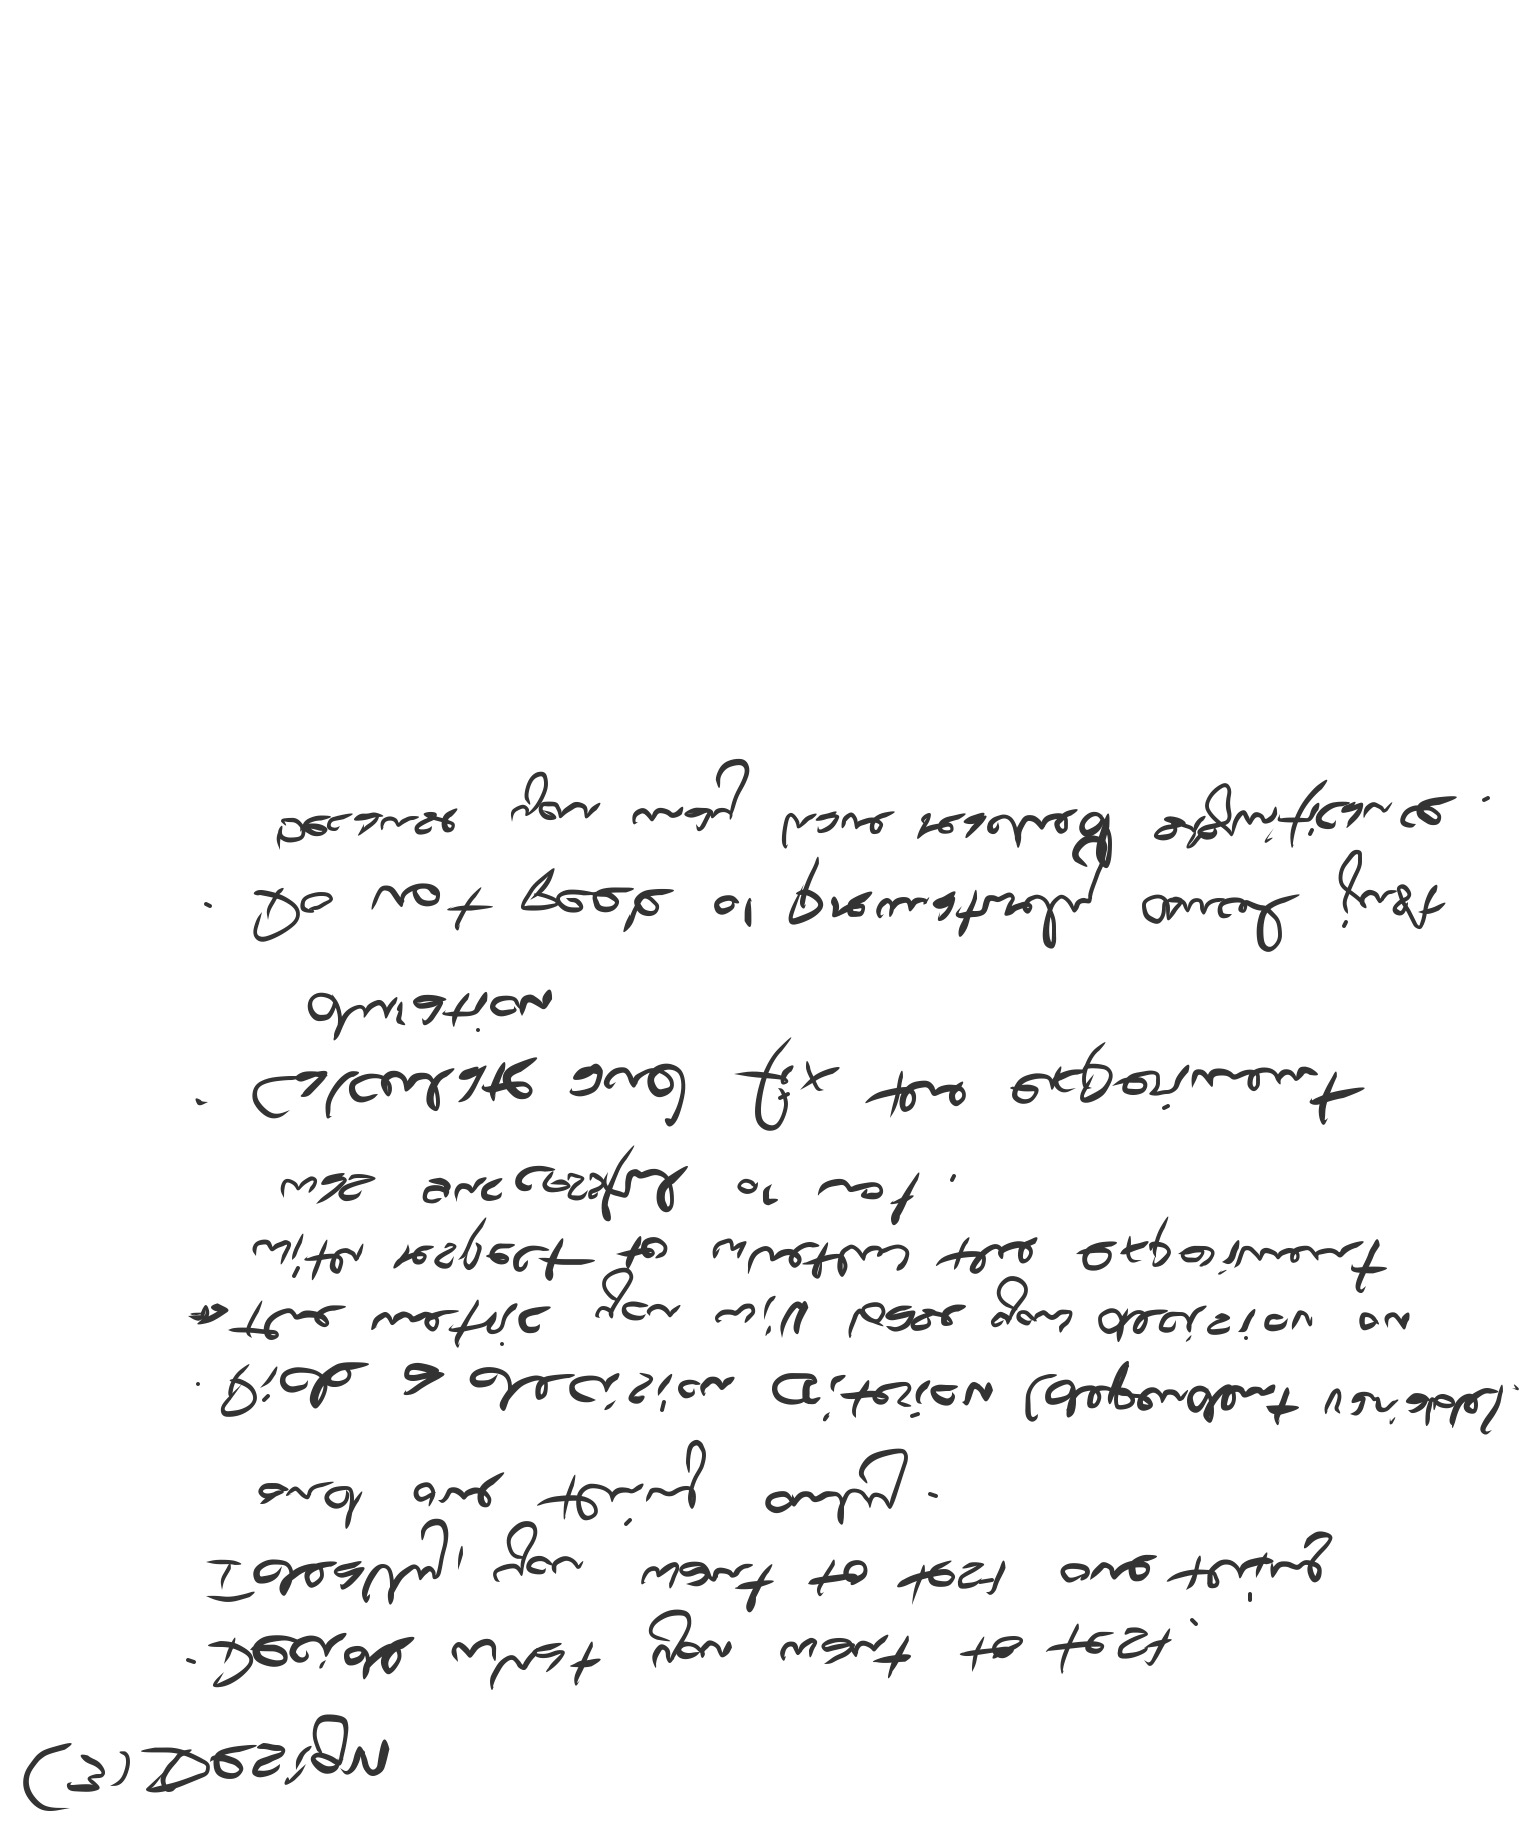 (3) Design
· Decide what you want to test.
Ideally, you want to test one thing
and one thing only.
· Pick a decision criterion (dependent variable).
→ the metric you will base your decision on
with respect to whether the experiment
was successful or not.
· Calculate and fix the experiment
duration
· Do not peek or prematurely cancel just
because you may have reached significance.